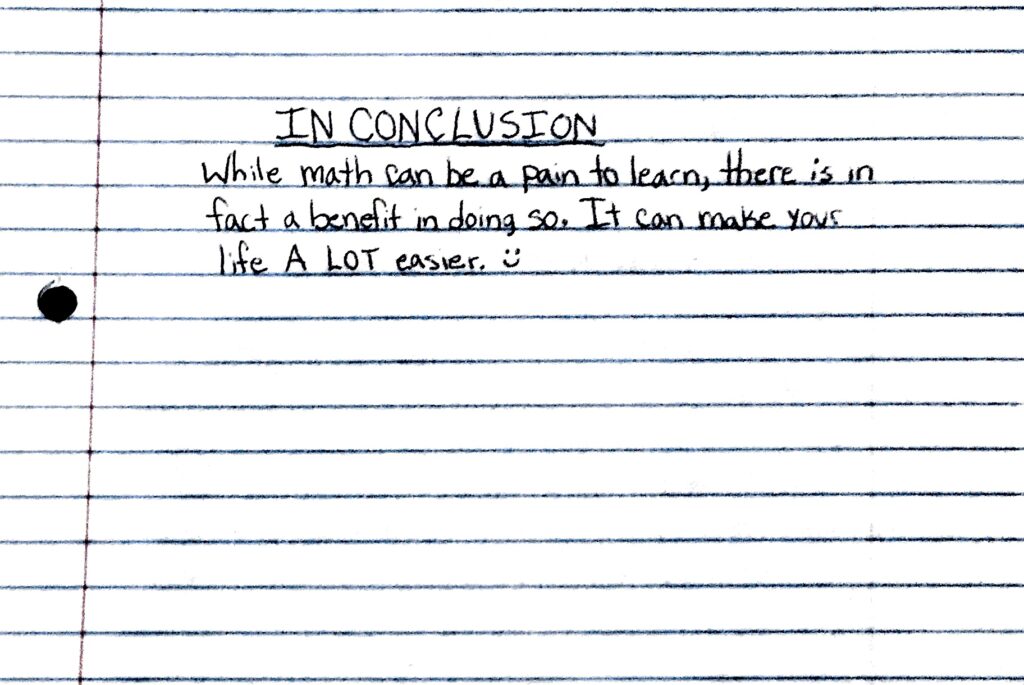 IN CONCLUSION
While math can be a pain to learn, there is in
fact a benefit in doing so. It can make your
life A LOT easier. :)